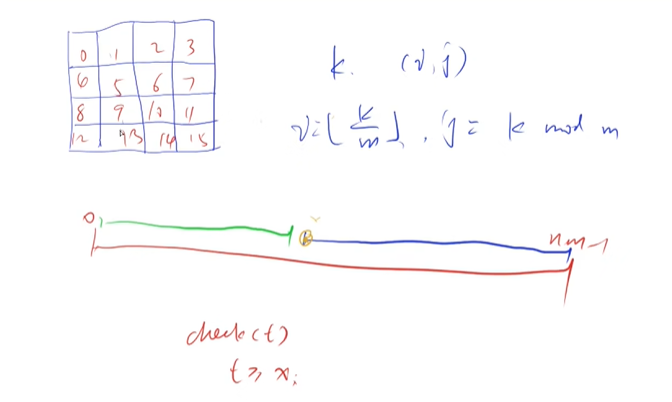 0 1 2 3
6 5 6 7
8 9 10 11
12 13 14 15
k. (i, j)
i = ⌊k/m⌋, j = k mod m
0 nm-1
check(t)
t ≥ x;